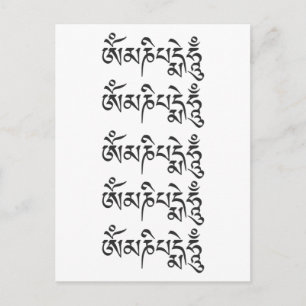 ༀམཎིཔདྨེཧཱུྃ
ༀམཎིཔདྨེཧཱུྃ
ༀམཎིཔདྨེཧཱུྃ
ༀམཎིཔདྨེཧཱུྃ
ༀམཎིཔདྨེཧཱུྃ